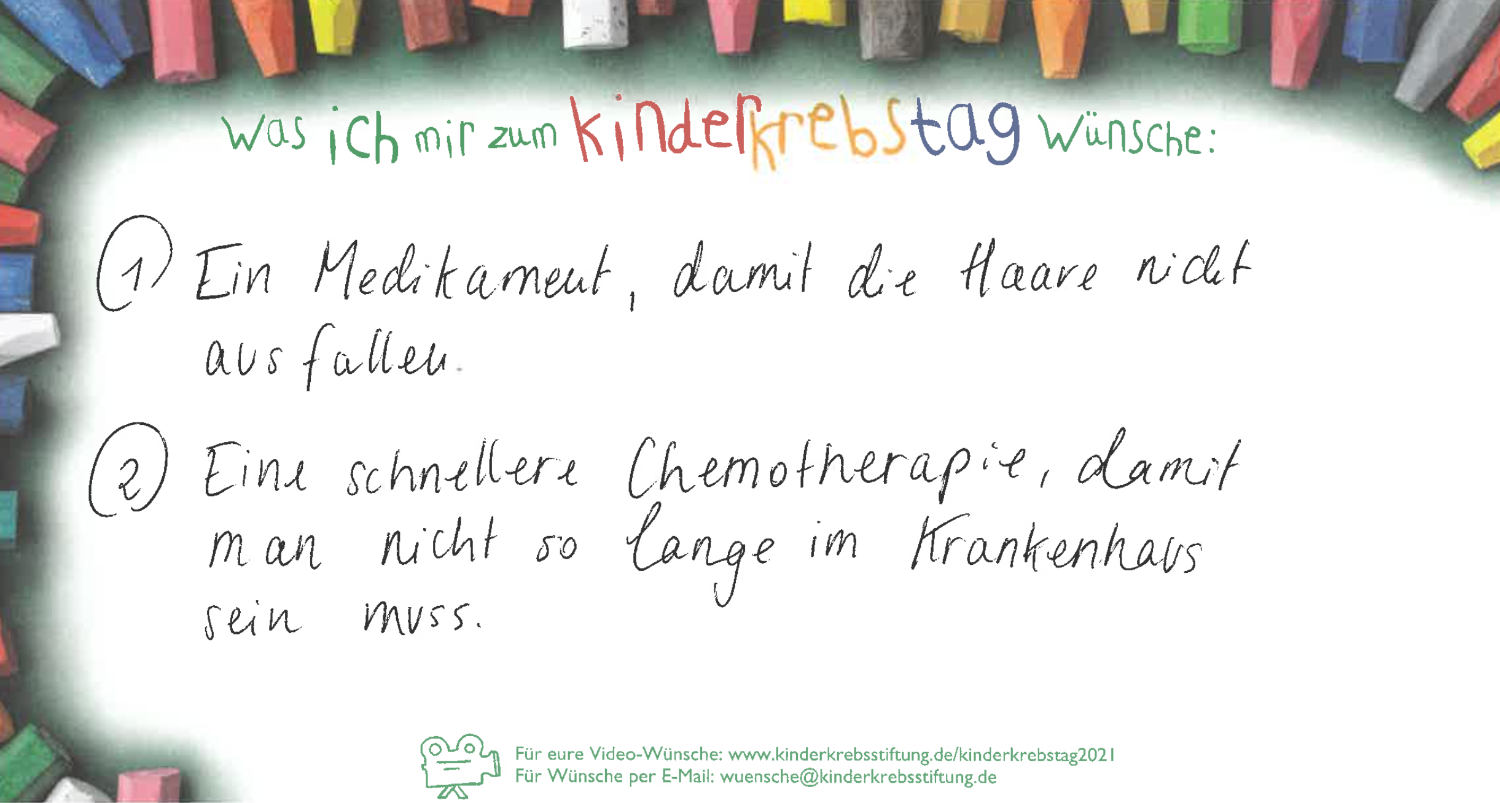 Was ich mir zum kinderkrebstag wünsche:
① Ein Medikament, damit die Haare nicht
ausfallen.
② Eine schnellere Chemotherapie, damit
man nicht so lange im Krankenhaus
sein muss.
Für eure Video-Wünsche: www.kinderkrebsstiftung.de/kinderkrebstag2021
Für Wünsche per E-Mail: wuensche@kinderkrebsstiftung.de